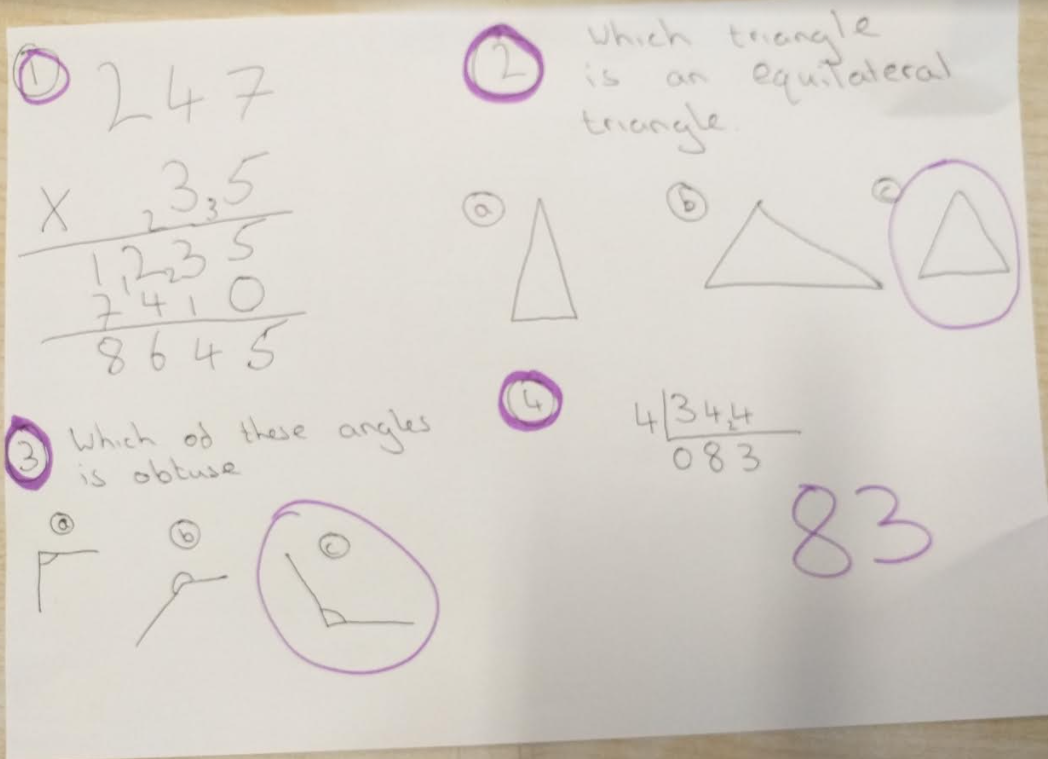 1
247
x 2335
1,2,235
7410
8645
2
Which triangle
is an equilateral
triangle.
a
b
c
3
Which od these angles
is obtuse
a
b
c
4
4 3424
083
83